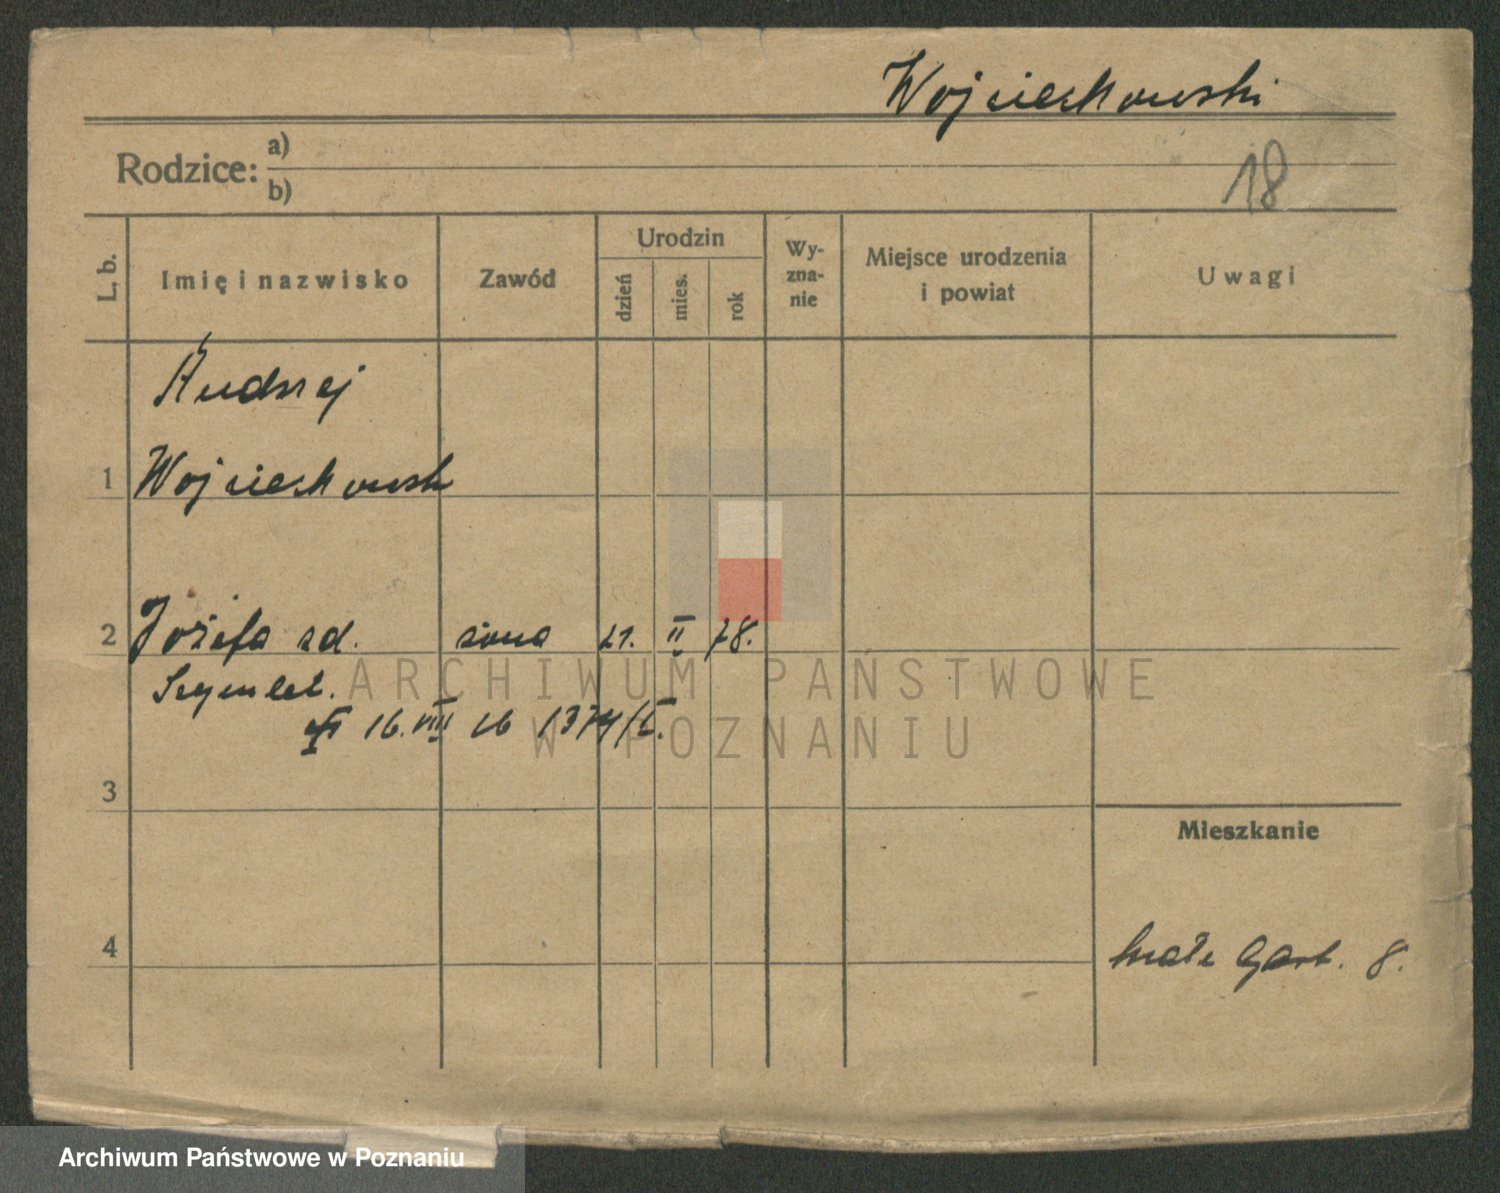 Wojciechowski
18
Rodzice: a)
b)
L. b.
Imię i nazwisko
Zawód
Urodzin
dzień
mies.
rok
Wy-
zna-
nie
Miejsce urodzenia
i powiat
Uwagi
Andrzej
1 Wojciechowski
2 Józefa zd. żona 21. II 78.
16. VIII 26 1374/I.
3
Mieszkanie
4
Małe Garb. 8.
ARCHIWUM PAŃSTWOWE
W POZNANIU
Archiwum Państwowe w Poznaniu